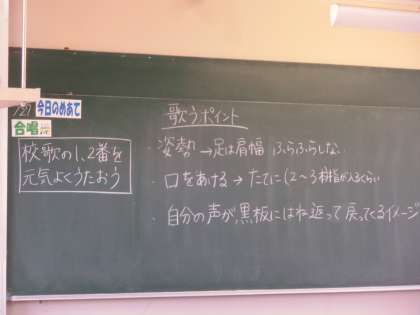 今日のめあて
合唱
校歌の1、2番を
元気よくうたおう
歌うポイント
・姿勢 → 足は肩幅 ふらふらしない
・口をあける → たてに(2~3本指が入るくらい
・自分の声が黒板にはね返って戻ってくるイメージ